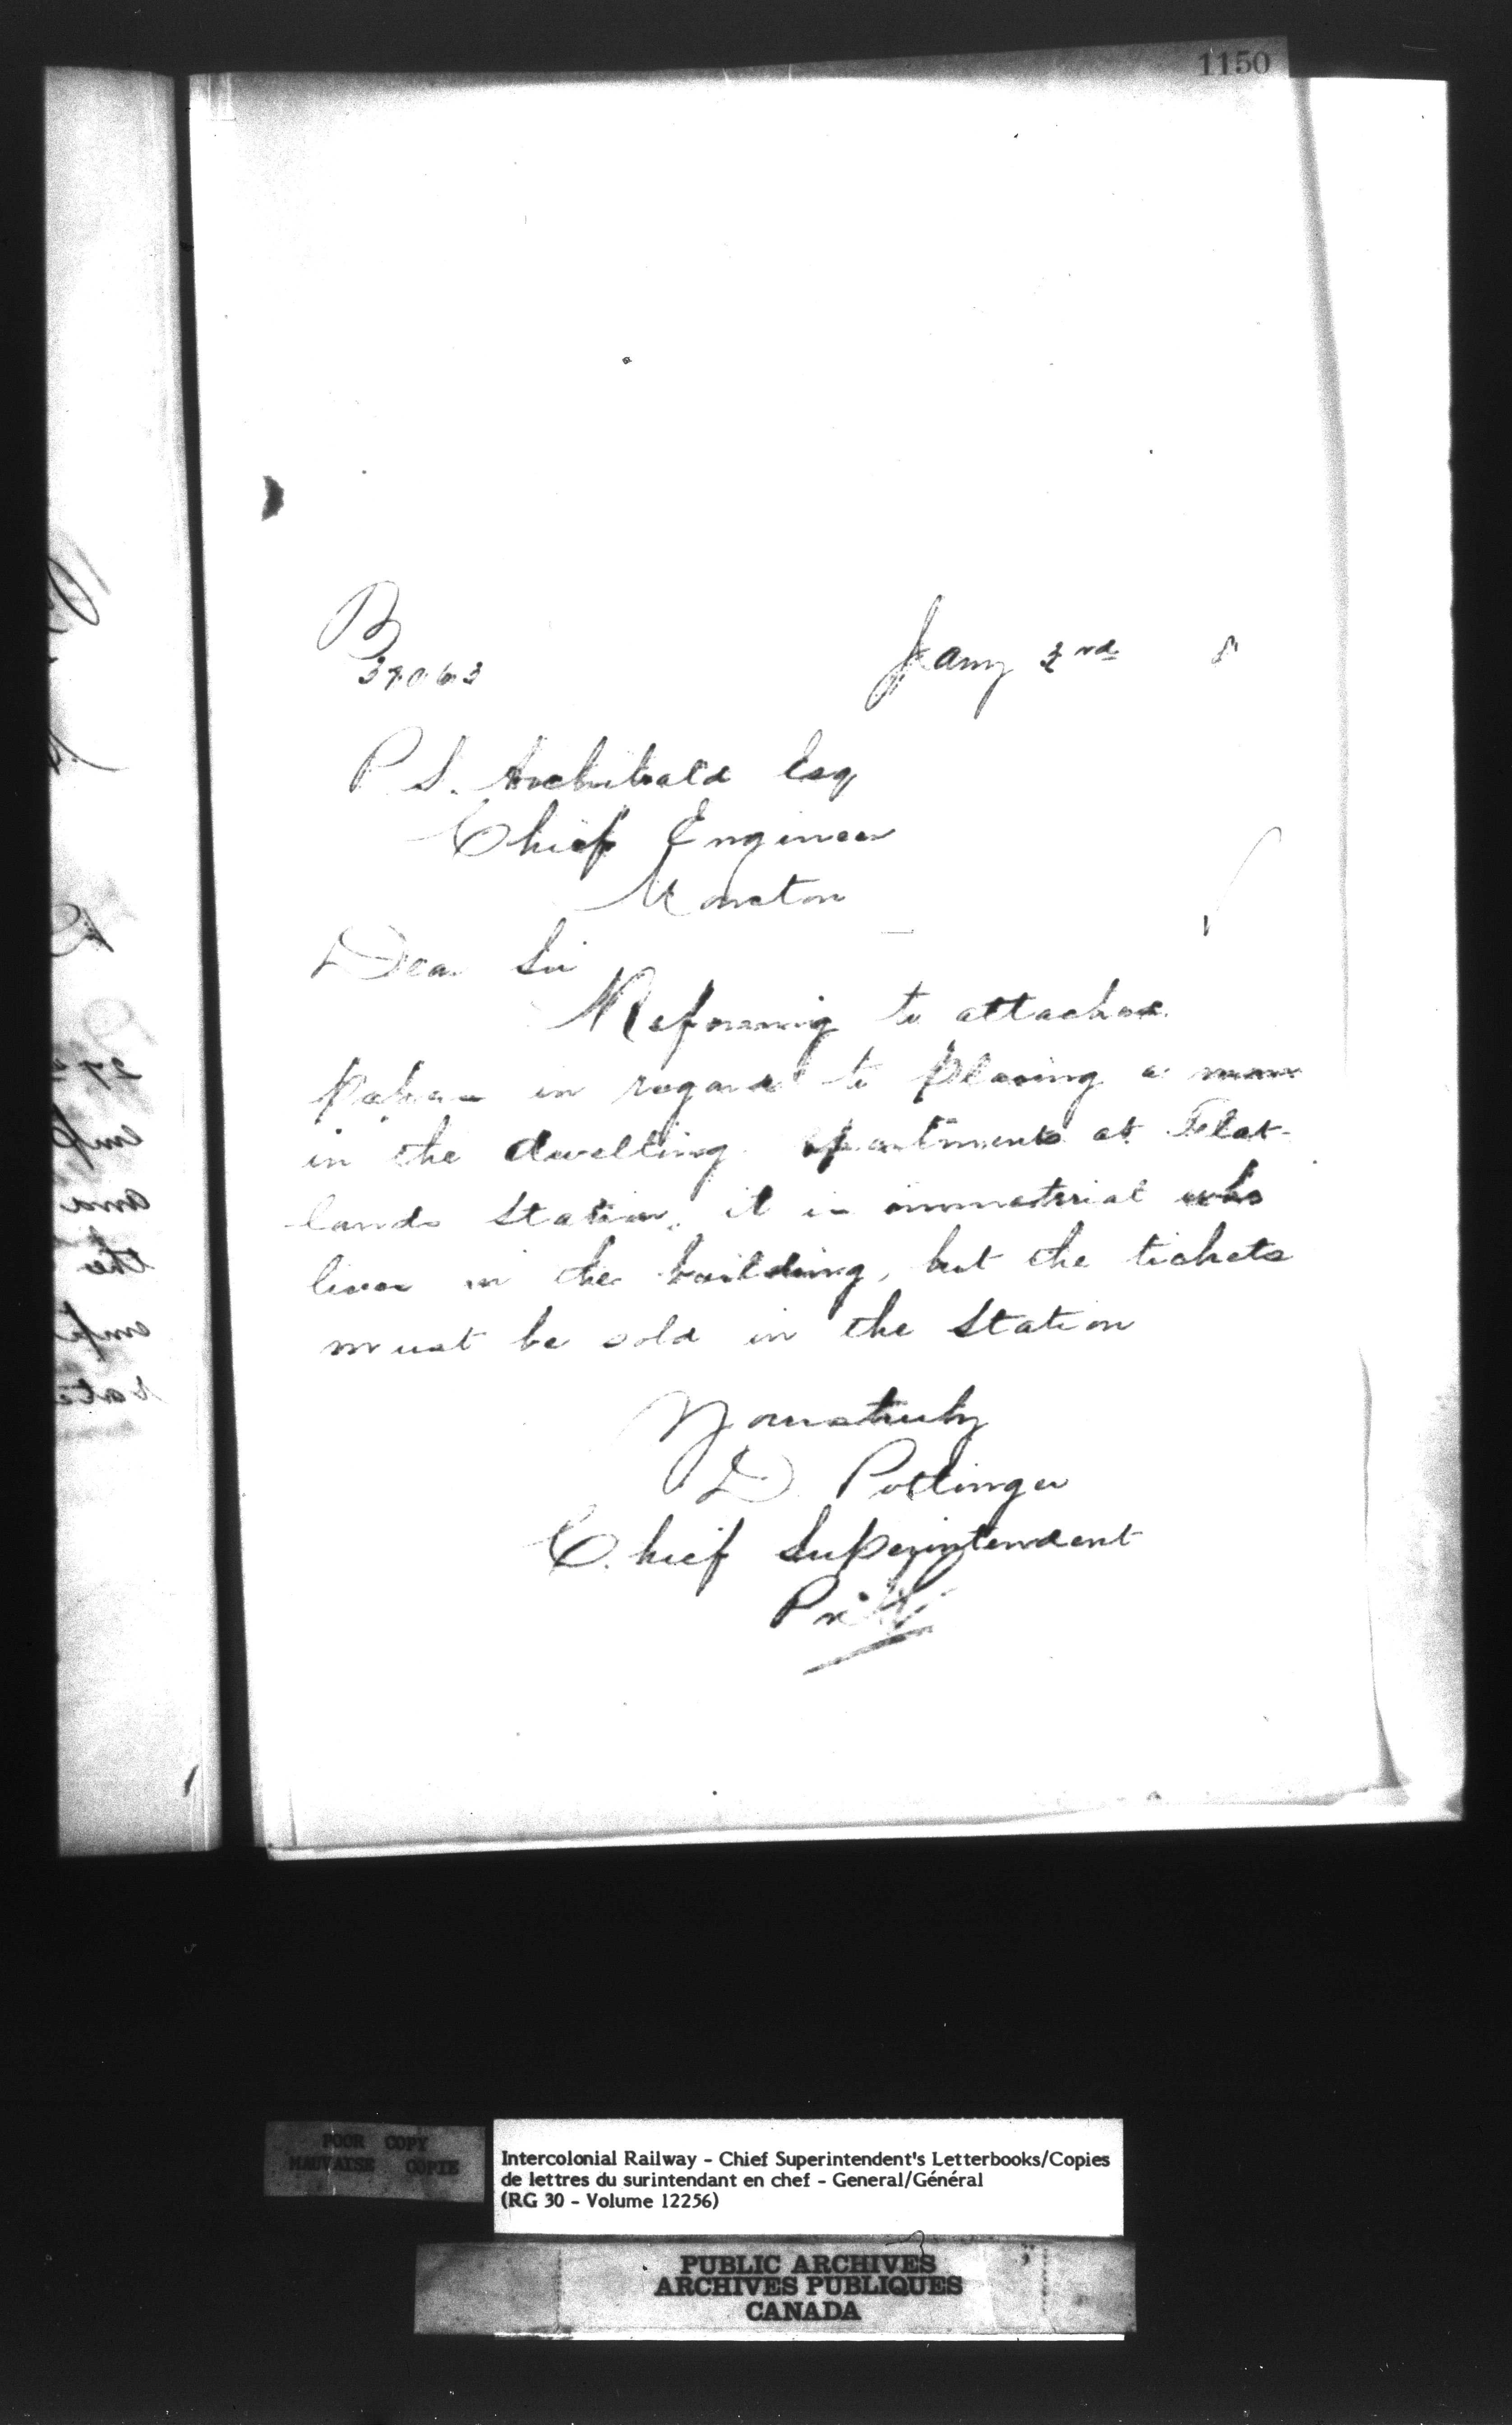 1150
B
39063
Jany 3rd 8
P. S. Archibald Esq
Chief Engineer
Moncton
Dear Sir
Referring to attached
papers in regard to placing a man
in the dwelling apartments at Flat-
lands Station, it is immaterial who
lives in the building, but the tickets
must be sold in the Station
Yours truly
D. Pottinger
Chief Superintendent
POOR COPY
MAUVAISE COPIE
Intercolonial Railway - Chief Superintendent's Letterbooks/Copies
de lettres du surintendant en chef - General/Général
(RG 30 - Volume 12256)
PUBLIC ARCHIVES
ARCHIVES PUBLIQUES
CANADA